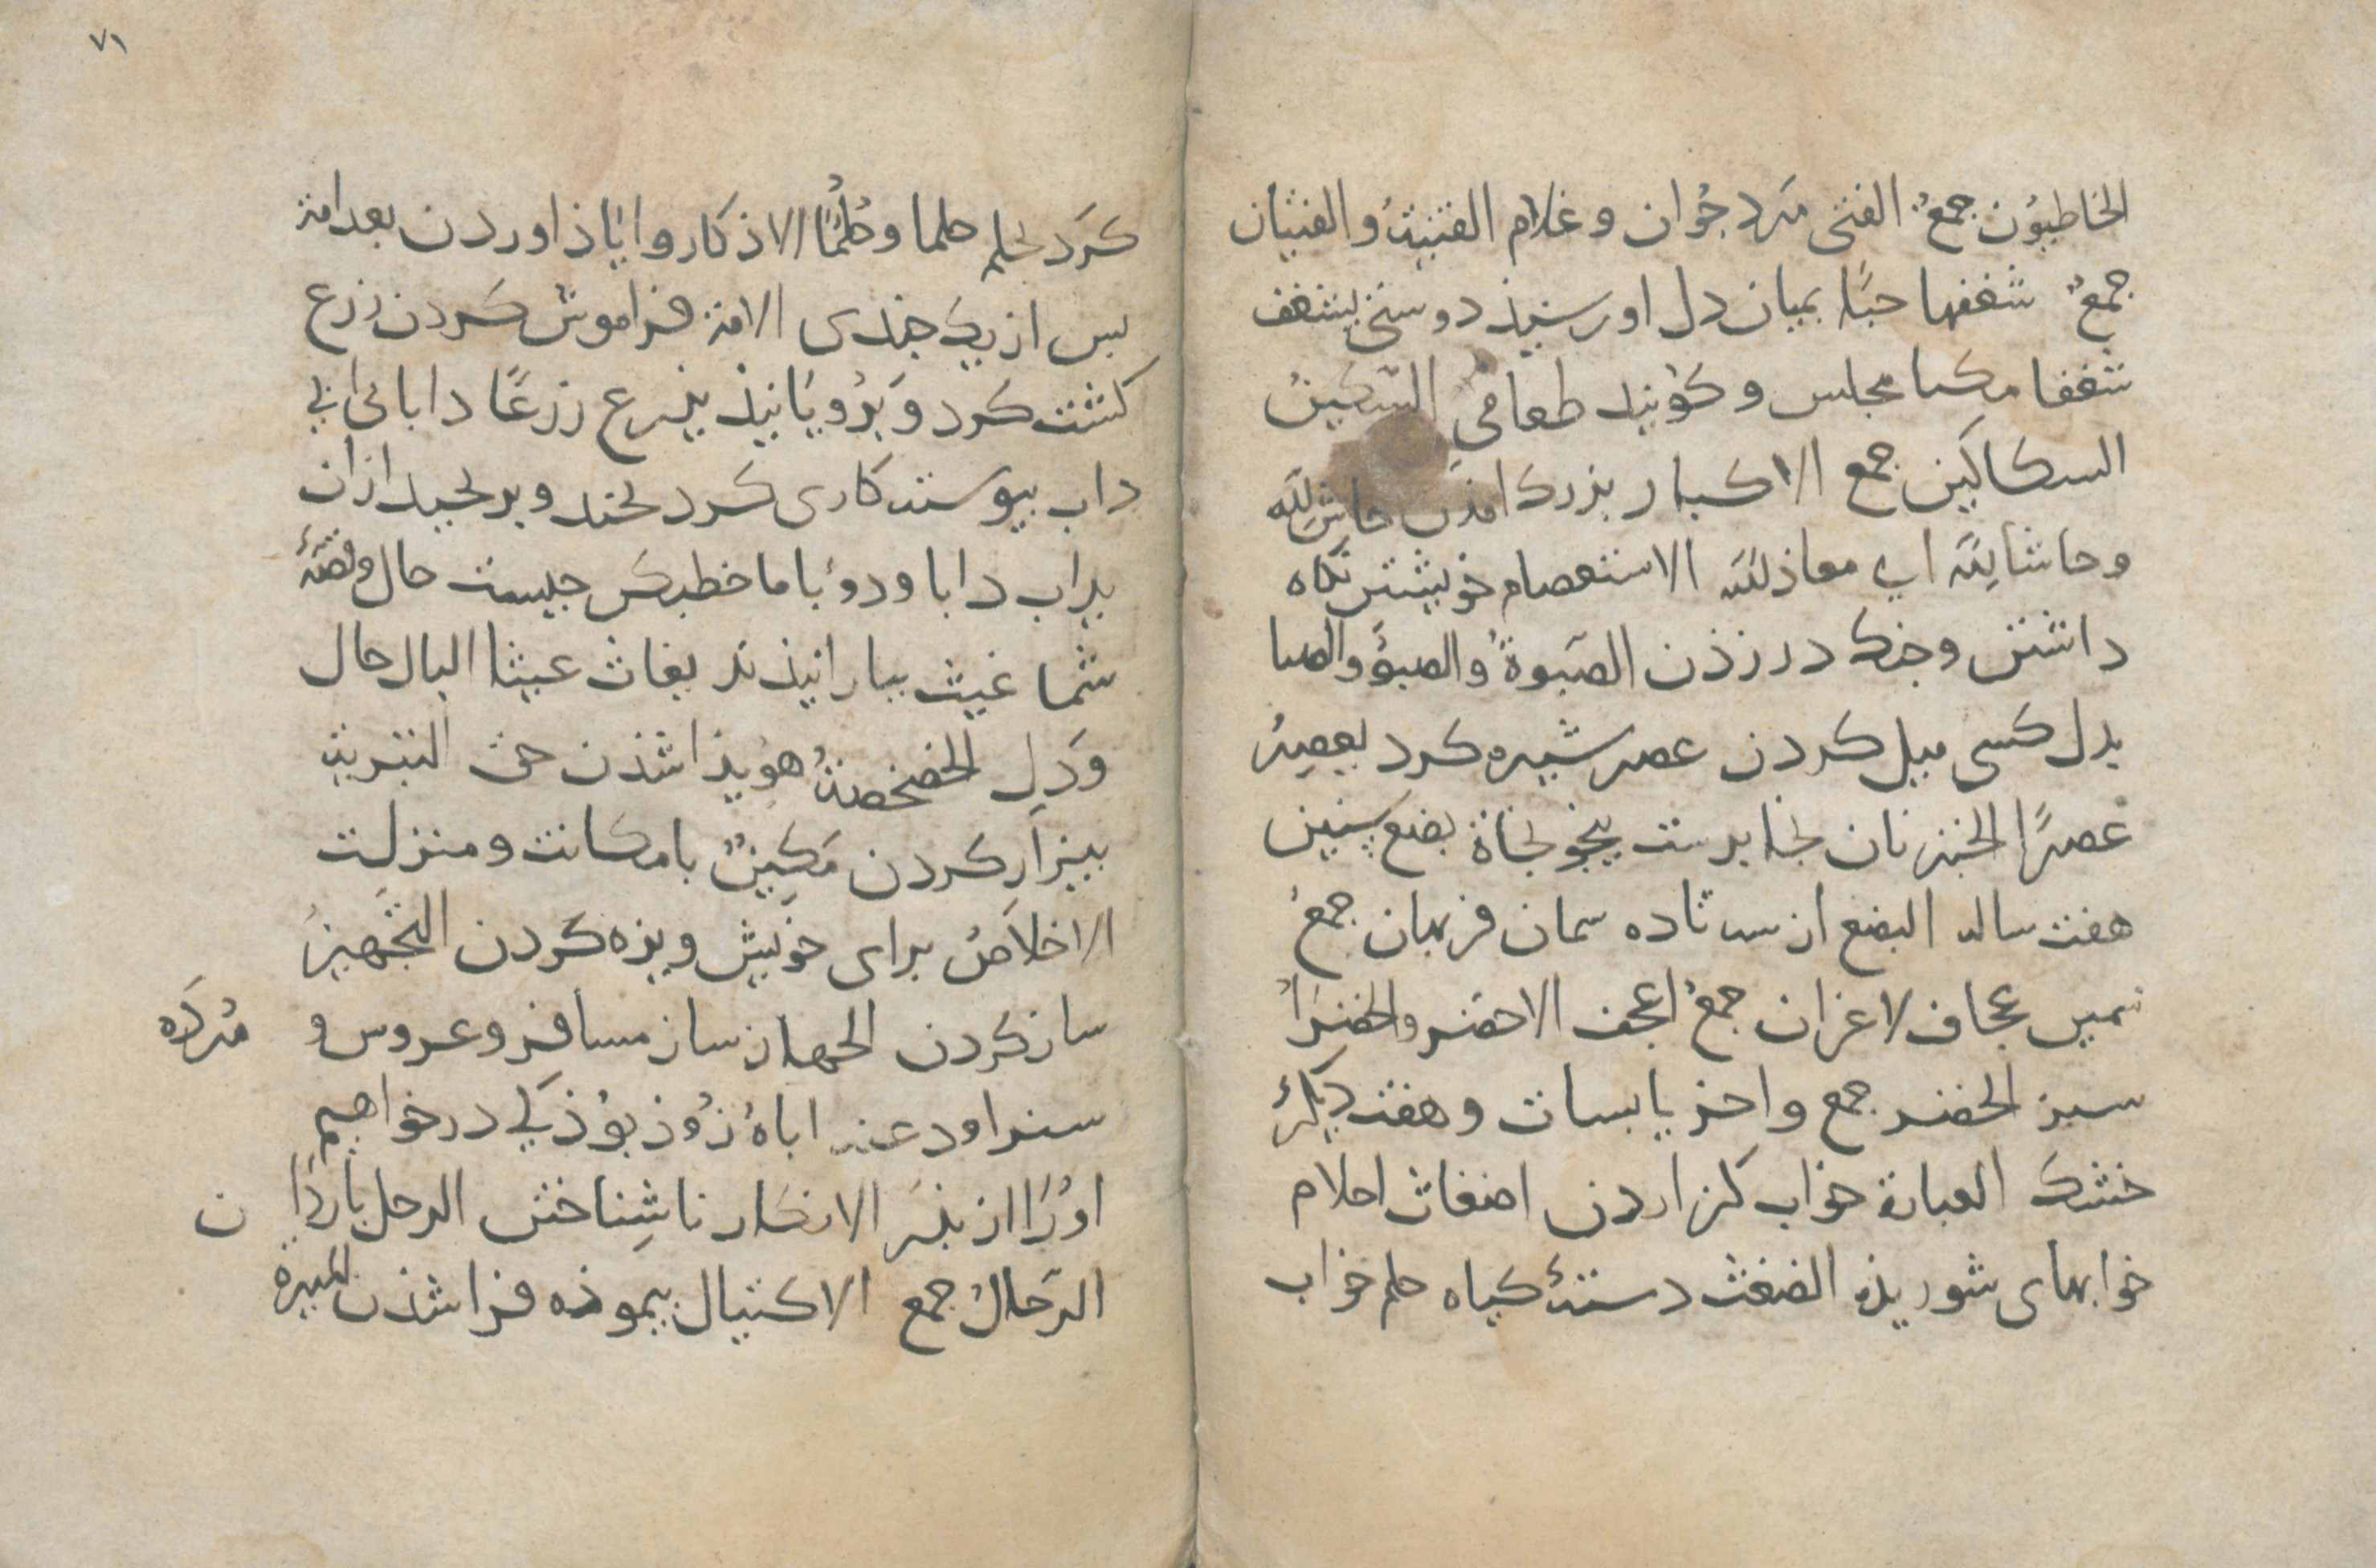 الخاطیون جمعٌ الفتی مَرد جُوان و غلام الفتیةُ والفتیان
جمعٌ شغفها حبّا بمیان دل او رسیذ دوستی یشغف
شغفا متکا مجلس و کویند طعامی السکینُ
السکاکین جمع الاکبار بزرک امذن حاش لِلّه
وحاشا لِلّه ای معاذ لله الاستعصام خویشتن نکاه
داشتن وجنک در زذن الصَبوةُ والصبوُّ والصبا
بدل کسی میل کردن عصر شیره کرد یعصِرُ
عصرًا الخبز نان نجا برست ینجو نجاة بضع سِنین
هفت ساله البضع از سه تا ده سمان فربهان جمعُ
سمین عجاف لاغران جمعُ اعجف الاخضر والخضرَاُ
سبز الخضر جمع واخر یابسات و هفت دیکرُ
خشک العبارة خواب کزاردن اضغاث احلام
خوابهای شوریذه الضغث دستهٔ کیاه حلم خواب
۷۱
کرَد یحلم حلما و حُلُمًا الاذکار وا یَاذ اوردن بعد امة
بس از یک جندی الامة فراموش کردن زرع
کشت کرد وَ بَرُویَانیذ یزرع زرعًا دابا ئ ای فی
داب بیوسته کاری کرد بخند و برنجید ازان
یداب دابا ودؤبا ما خطبکن جیست حال وقصّهٔ
شما غیث ببارانیذند یغاث غیثا البال حال
وَدِل الحصحصةُ هویذا شذن حق التبریة
بیزار کردن مَکِینٌ با مکانت و منزلت
الاخلاصُ برای خویش ویزه کردن التجَهیزُ
ساز کردن الجهاز ساز مسافر و عروس و مُردَه
سنراود عنه اباهُ زُوذ بوُذ کی درخواهیم
اوُرَا از بذر الانکار ناشِناختن الرحل باردَان
الرّحالُ جمع الاکتیال بیموذه فرا شذن المیرة